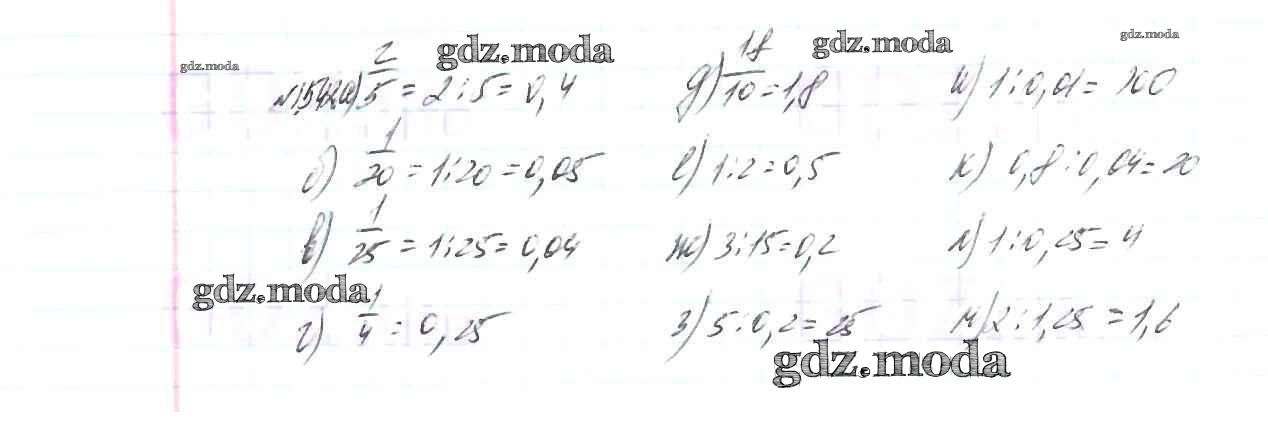 gdz.moda
gdz.moda
gdz.moda
gdz.moda
№1542 а) 2/5 = 2:5 = 0,4
б) 1/20 = 1:20 = 0,05
в) 1/25 = 1:25 = 0,04
gdz.moda
г) 1/4 = 0,25
д) 18/10 = 1,8
е) 1:2 = 0,5
ж) 3:15 = 0,2
з) 5:0,2 = 25
gdz.moda
и) 1:0,01 = 100
к) 0,8:0,04 = 20
л) 1:0,25 = 4
м) 2:1,25 = 1,6